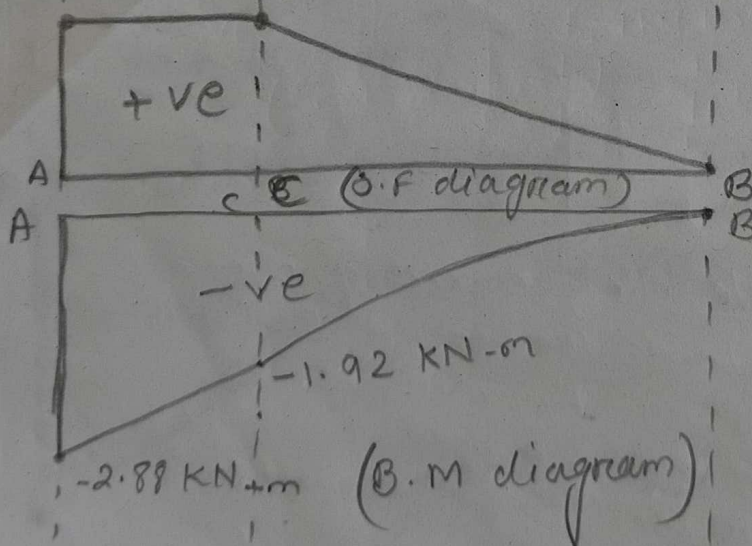 +ve
A C B (S.F diagram) B
A B
-ve
-1.92 KN-m
-2.88 KN-m (B.M diagram)